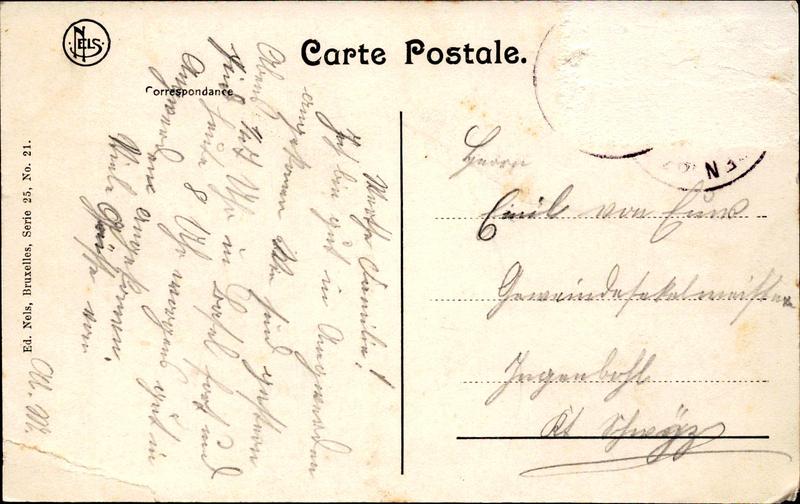 NELS
Carte Postale.
Correspondance
Ed. Nels, Bruxelles, Serie 25, No. 21.
Werthe Familie!
Ich bin gut in Angwerden
angekommen Wir sind gestern
Abend Uhr in Basel fort und
sind heute 8 Uhr morgens gut in
Angwerden angekommen.
Viele Grüsse von
M. M.
Herrn
Emil von Euw
Gemeindesekelmeister
Ingenbohl
Kt Schwÿz